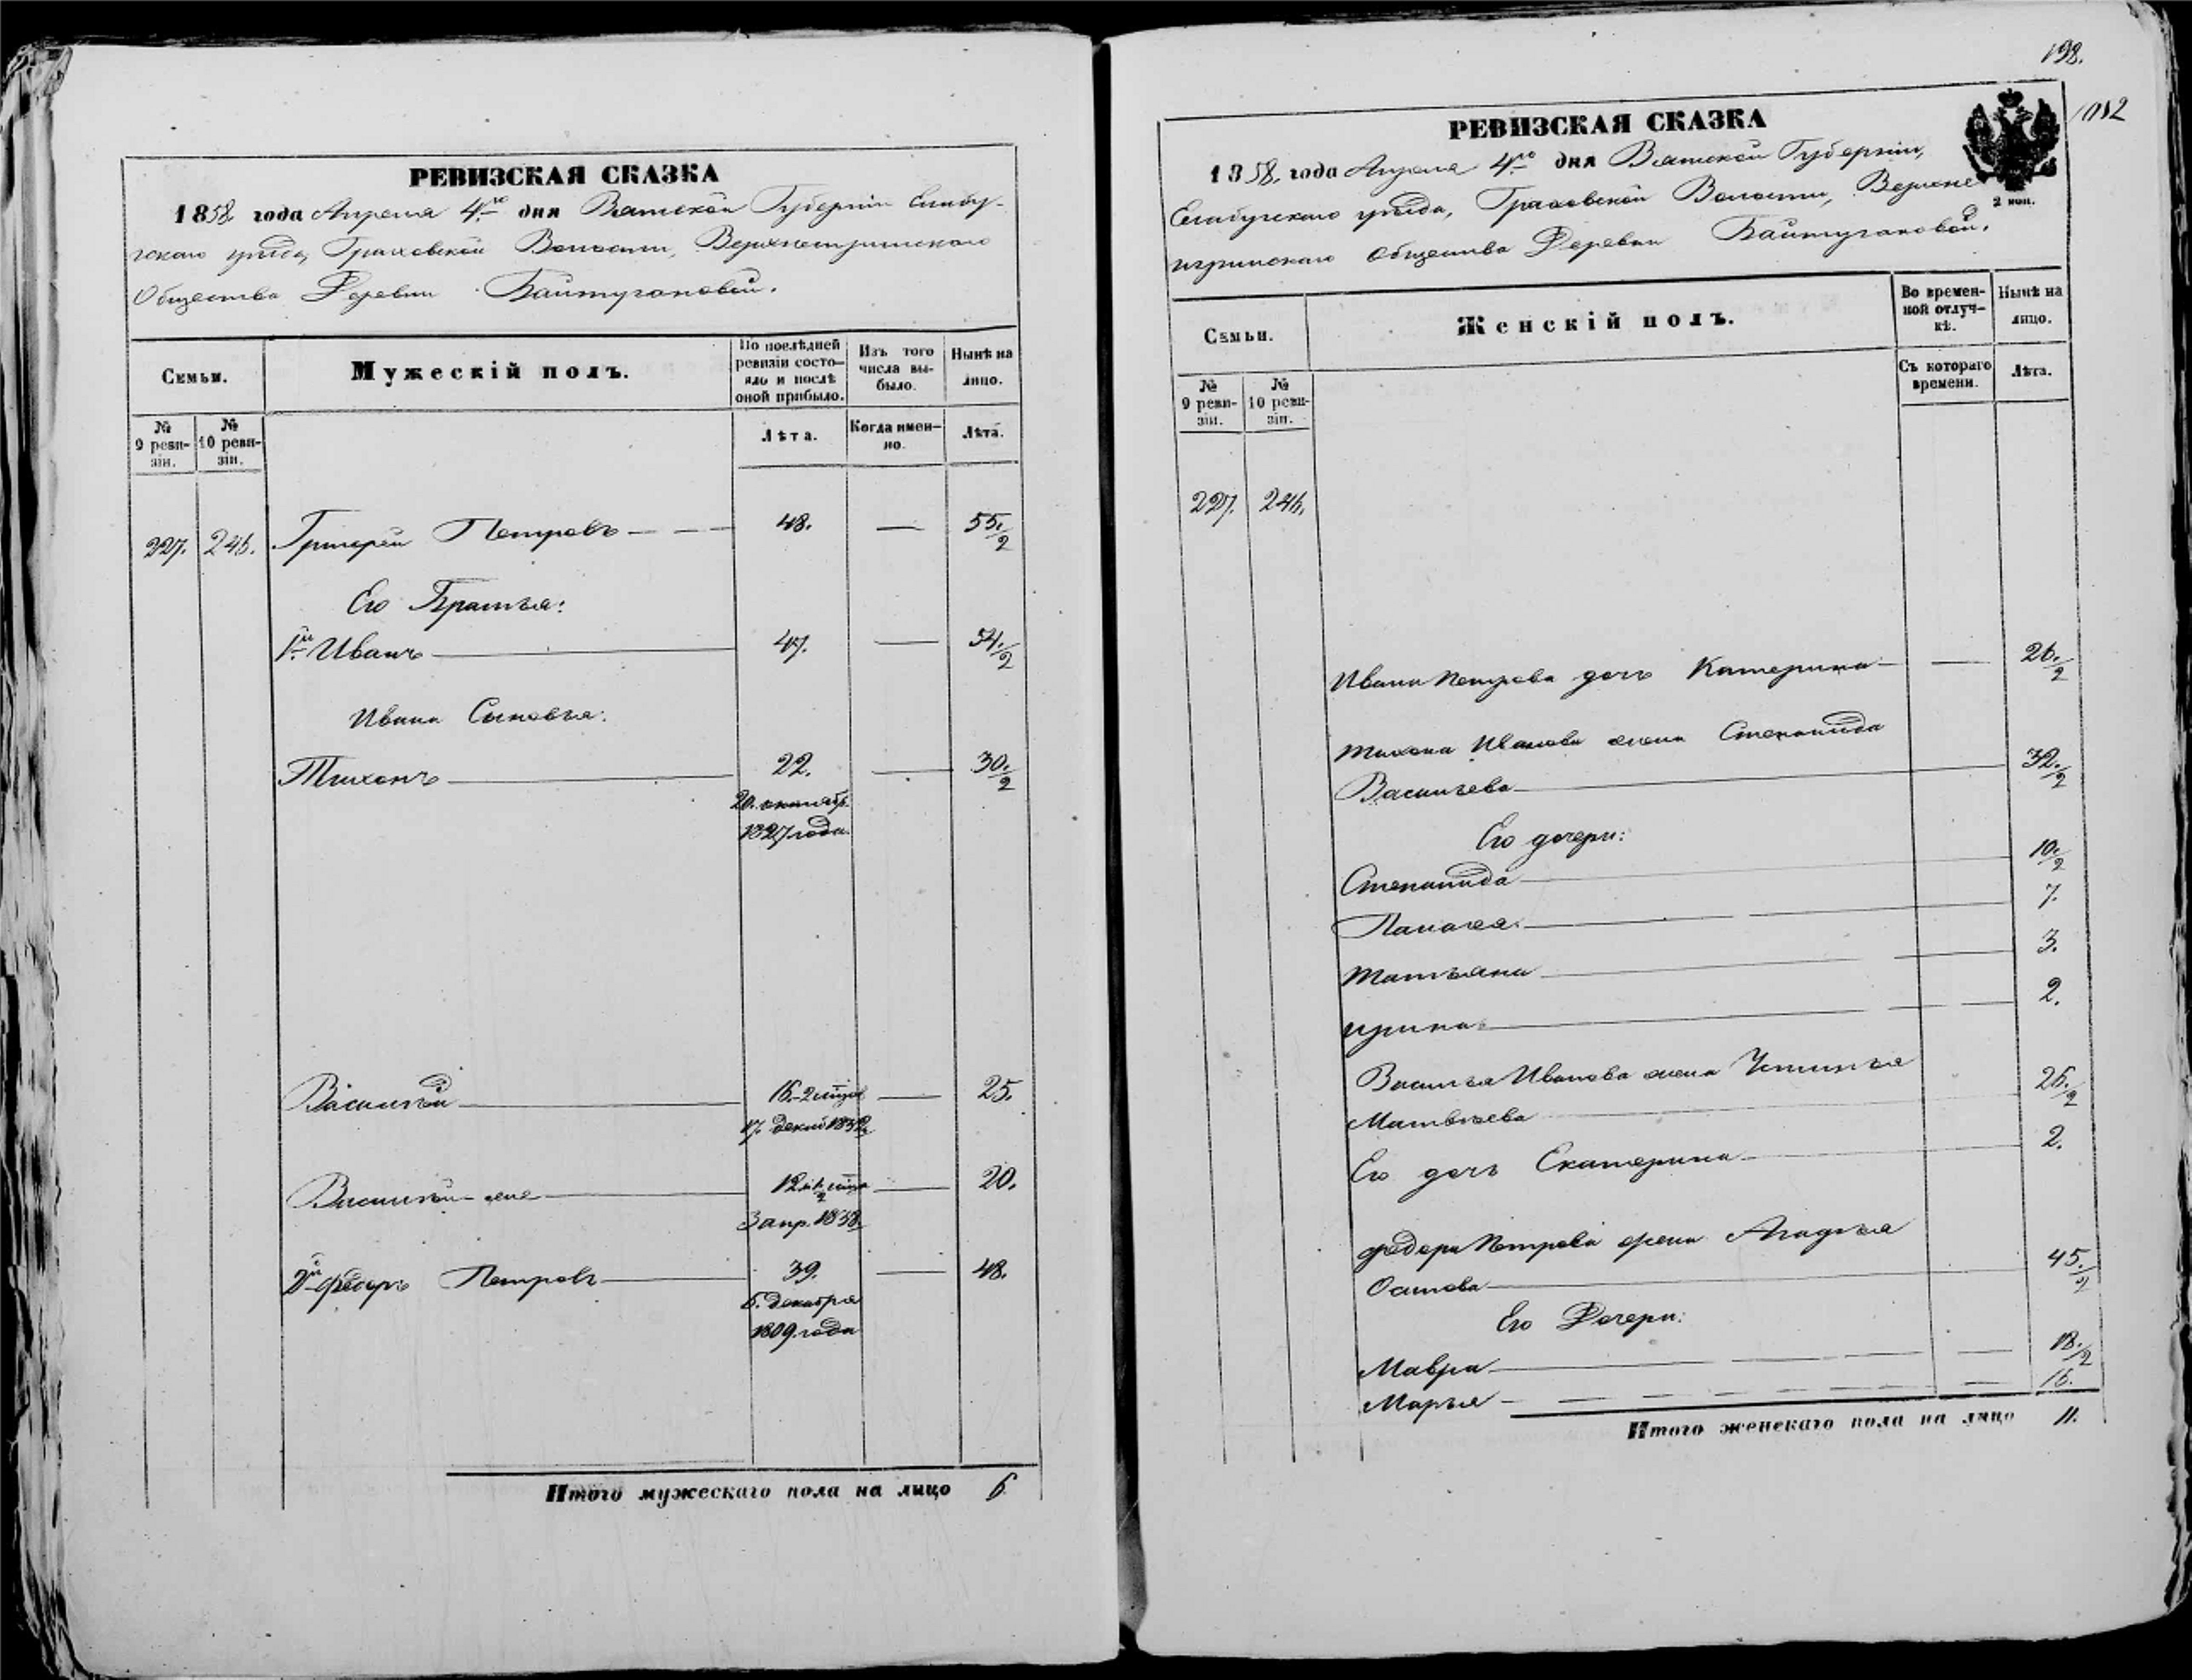 РЕВИЗСКАЯ СКАЗКА
1858 года Апреля 4го дня Вятской Губернiи Елабу-
гскаго уѣзда, Граховской Волости, Верхнеигринскаго
Общества Деревни Баитугановой.
Семьи.
Мужескiй полъ.
По послѣдней ревизiи состо-яло и послѣ оной прибыло.
Изъ того числа вы-было.
Нынѣ на лицо.
№ 9 реви-зiи.
№ 10 реви-зiи.
Лѣта.
Когда имен-но.
Лѣта.
227. 246. Григорей Петровъ 48. — 55 1/2
Его Братья:
1й Иванъ 47. — 54 1/2
Ивана Сыновья:
Тихонъ 22. — 30 1/2
20. октябр.
1827 года.
Василѣй 16. 2 — 25.
17. декаб 1832
Василѣй-же 12 — 20.
3 апр. 1838.
2й Федоръ Петровъ 39. — 48.
6. декабря
1809 года
Итого мужескаго пола на лицо 6
198.
1012
РЕВИЗСКАЯ СКАЗКА
1858, года Апреля 4го дня Вятской Губернiи,
2 коп.
Елабугскаго уѣзда, Граховской Волости, Верхне
игринскаго Общества Деревни Баитугановой.
Семьи.
Женскiй полъ.
Во времен-ной отлуч-кѣ.
Нынѣ на лицо.
№ 9 реви-зiи.
№ 10 реви-зiи.
Съ котораго времени.
Лѣта.
227. 246.
Ивана Петрова дочь Катерина — 26 1/2
Тихона Иванова жена Степанида
Васильева 32 1/2
Его дочери:
Степанида 10 1/2
Палагея 7.
Татьяна 3.
Ирина 2.
Василья Иванова жена Устинья
Матвѣева 26 1/2
Его дочь Екатерина 2.
Федора Петрова жена Агафья
Осипова 45 1/2
Его Дочери:
Мавра — 18 1/2
Марья — 16.
Итого женскаго пола на лицо 11.